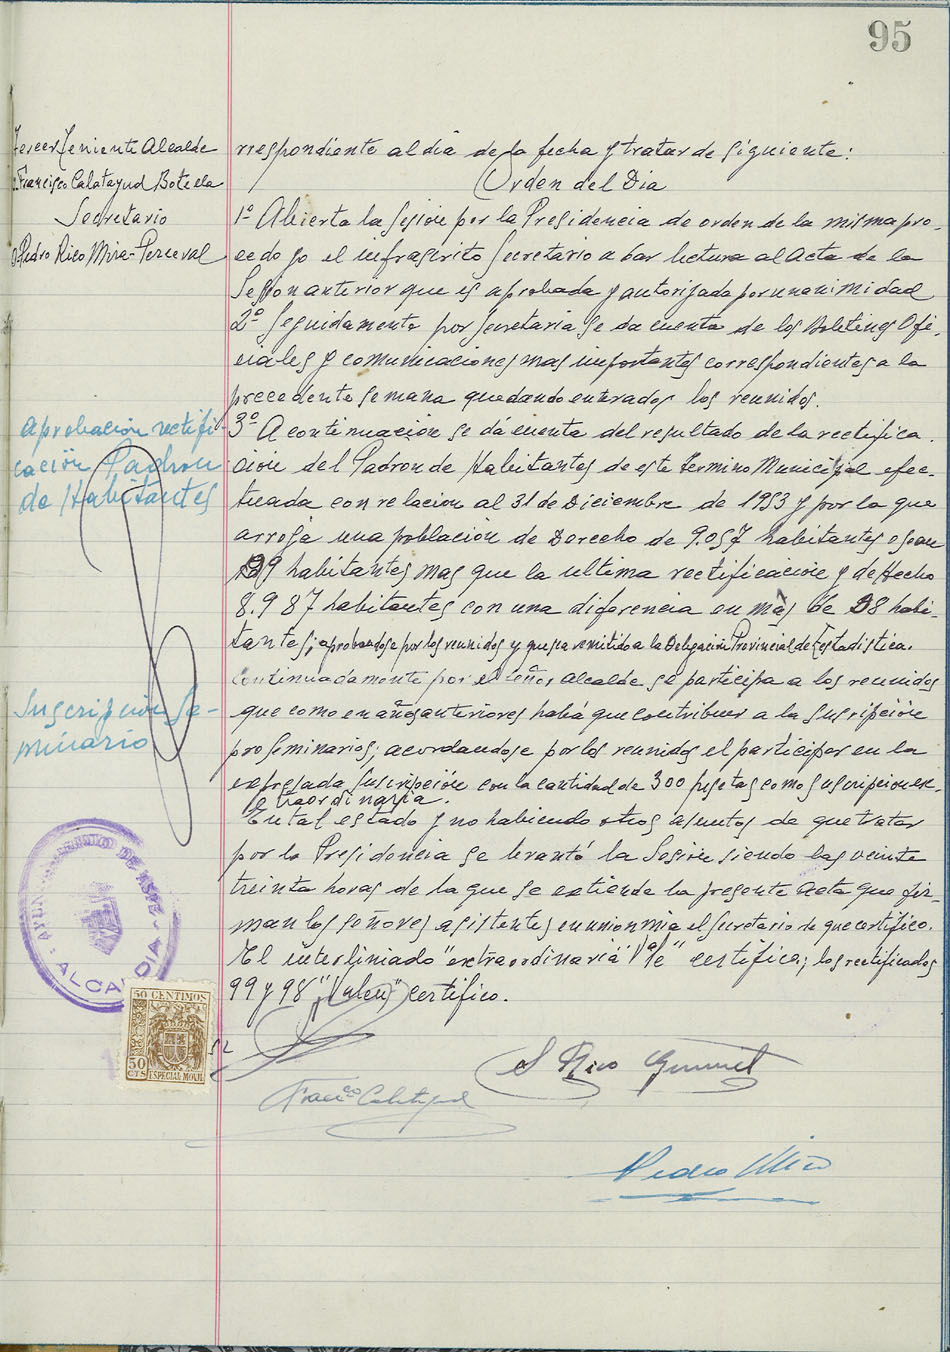 95
Tercer Teniente Alcalde
D. Francisco Calatayud Botella
Secretario
D. Pedro Rico Mira-Perceval
rrespondiente al dia de la fecha y tratar de siguiente:
Orden del Dia
1º Abierta la Sesión por la Presidencia de orden de la misma pro-
cedo yo el infrascrito Secretario a dar lectura al Acta de la
Sesion anterior que es aprobada y autorizada por unanimidad
2º Seguidamente por Secretaria se da cuenta de los Boletines Ofi-
ciales y comunicaciones mas importantes correspondientes a la
precedente semana quedando enterados los reunidos.
aprobación rectifi-
cación Padron
de Habitantes
3º A continuación se dá cuenta del resultado de la rectifica-
ción del Padron de Habitantes de este Termino Municipal efec-
tuada con relación al 31 de Diciembre de 1953 y por la que
arroja una población de Derecho de 9.057 habitantes o sean
99 habitantes mas que la ultima rectificación y de Hecho
8.987 habitantes con una diferencia en más de 98 habi-
tantes; aprobandose por los reunidos y que sea remitido a la Delegación Provincial de Estadistica.
Suscripción Se-
minario
Continuadamente por el Señor Alcalde se participa a los reunidos
que como en años anteriores habá que contribuir a la suscripción
pro Seminarios; acordandose por los reunidos el participar en la
expresada suscripción con la cantidad de 300 pesetas como suscripcion ex-
traordinaria.
En tal estado y no habiendo otros asuntos de que tratar
por la Presidencia se levantó la Sesión siendo las veinte
treinta horas de la que se extiende la presente acta que fir-
man los señores asistentes en union mia el Secretario de que certifico.
El interliniado "extraordinaria" Vale" certifica; los rectificados
99 y 98" "Valen" certifico.
AYUNTAMIENTO DE ASPE
ALCALDIA
50 CENTIMOS
50
CTS
ESPECIAL MOVIL
S. Rico
Franco Calatayud
Pedro Rico